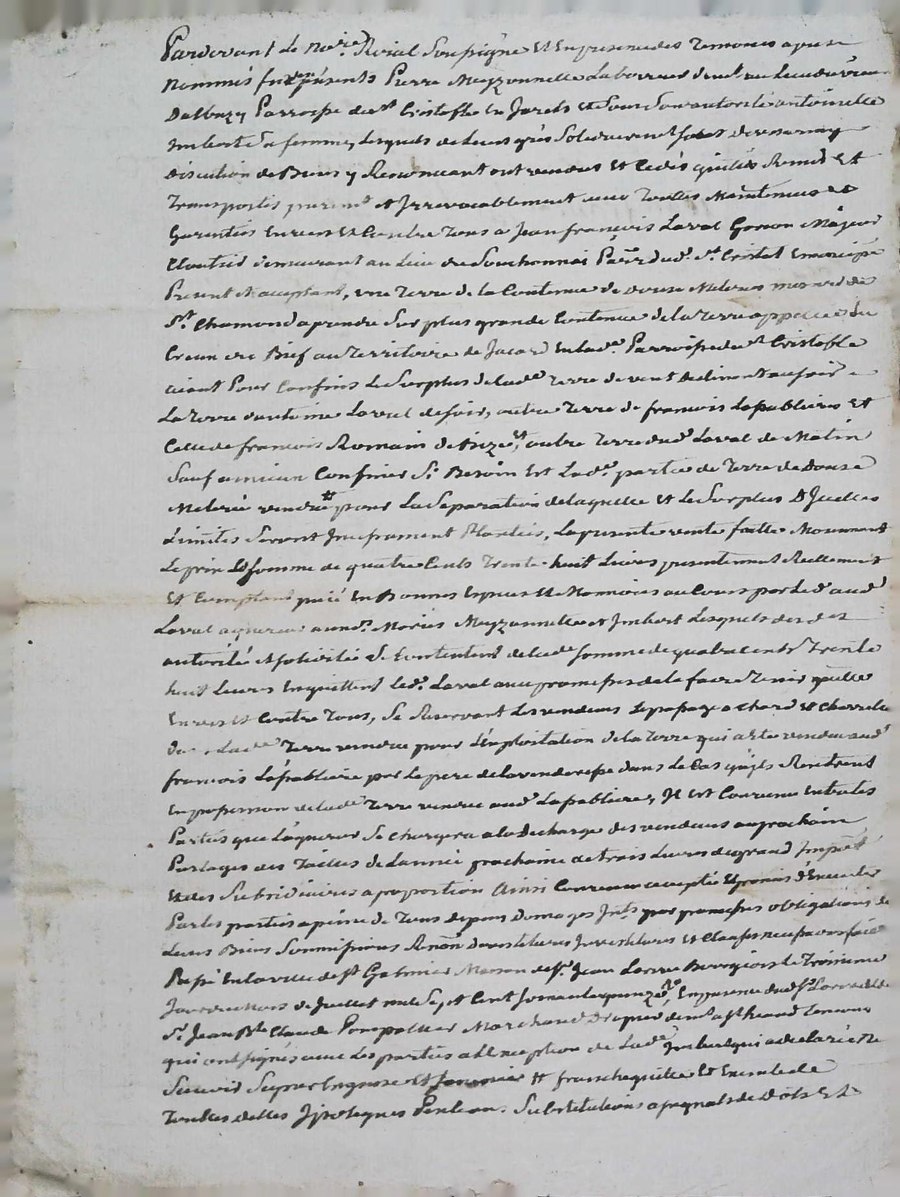 Pardevant Le no.re Roial Soussigné Et En presence des Temoins apres
nommés furent présents Pierre Meyzonnette Laboureur dem.t au Lieu
Dalbuzy Parroisse de S.t Cristofle En Jarets Et de Son autorité antoinette
Imbert Sa femme, Lesquels de Leurs grés Solidairement
discution de Biens y Renonceant ont vendus Et Cedés quittés Remis Et
Transportés purem.t et Irrevocablement avec Toutes Maintenues et
Garenties Envers Et Contre Tous a Jean françois Laval Garçon Majeur
demeurant au Lieu de Souchonnas Parr.e dud. S.t Cristot
Present et acceptant, une Terre de la Contenue de Douse Meterées mesure de
S.t Chamond a prendre Sur plus grande Contenue de la Terre appellée du
Creux du Bief au Territoire de Jacard En lad.e Parroisse de S.t Cristofle
aiant Pour Confins Le Surplus de lad.e Terre de vent
La Terre dantoine Laval de Soir, autre Terre de francois Lapabliere Et
Celle de francois Romain de Bize, autre Terre dud. Laval de Matin
Sauf a mieux Confiner S'il Besoin Est Lad.e partie de Terre de Douse
Meterées vendue pour La Separation de laquelle et le Surplus D'Icelles
Limites Seront Incessament Plantées, La presente vente faitte Moiennant
Le prix Et Somme de quatre Cents Trente huit Livres presentement Reellement
Et Comptant paié En Bonnes Especes Et Monnoies au Cours par Led. aud.
Laval aquereur auxd. Mariés Meyzonnette et Imbert Lesquels
autorité et solidité Se Contentent de lad.e Somme de quatre cents Trente
huit Livres En quittent led. Laval avec promesses de le faire Tenir quitte
Envers Et Contre Tous, Se Reservant Les vendeurs Le passage a Chard et Charrette
Lad.e Terre vendue pour L'Exploitation de la Terre qui a été vendue aud.
francois Lapabliere par Le pere de la venderesse dans Le Cas qu'ils Rentrent
En possession de lad.e Terre vendue aud. Lapabliere, Il est Convenu Entre les
Parties que L'aquereur Se Chargera a la decharge des vendeurs au prochain
Partages des Tailles de L'année prochaine de trois Livres du grand Impôt
Et des Subsidiaires a proportion Ainsi Convenu accepté Et promis d'Executer
Par les parties a peine de Tous depens domages Int.s par promesses obligations de
Leurs Biens Soumissions Renon. Investitures et Clauses
Passé En la ville de S.t Galmier Maison de S.r Jean Bourgeois Le Troisieme
Jour du Mois de Juillet mil Sept Cent Soixante quinze, En presence dud. S.r
S.r Jean B.te Claude Pompallier Marchand Drapier dem.t a S.t heand Temoins
qui ont Signés avec Les parties a L'exception de Lad.e Imbert qui a declaré Ne
Scavoir Signer Enquise Et Sommée franche quitte Et Exempte de
Toutes dettes Ipoteques Substitutions